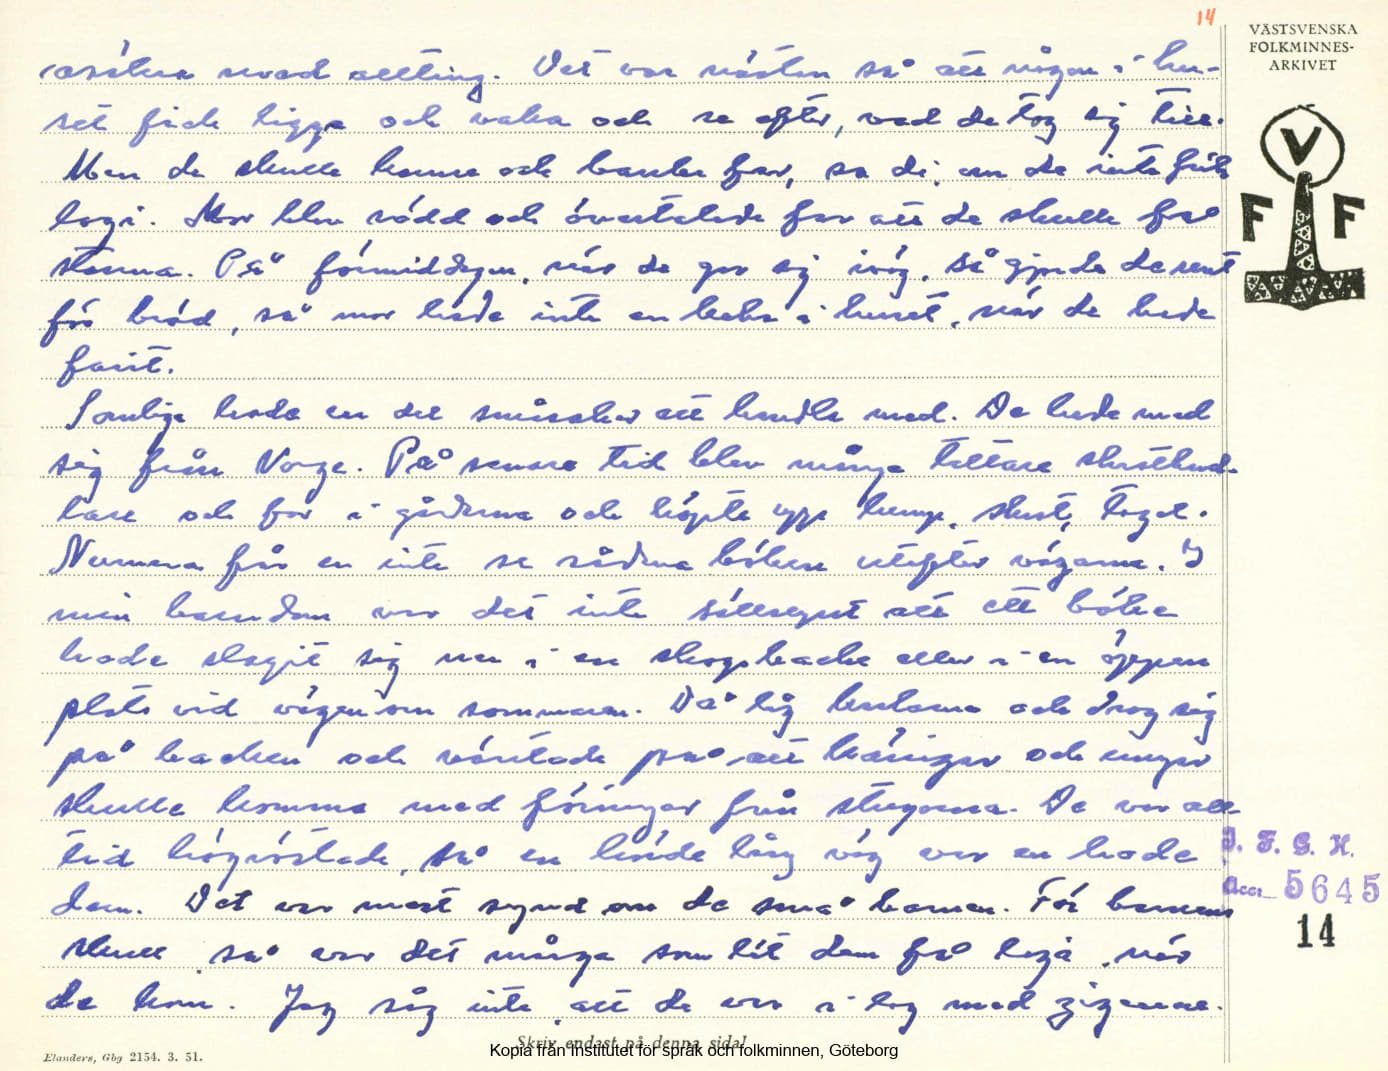 14
VÄSTSVENSKA
FOLKMINNES-
ARKIVET
V
F F
undrad allting. Det var nästan så att någon i hu-
set fick ligga och vaka och se efter, vad de tog sig till.
Men de skulle komma och banka far, sa di, om de inte fick
logi. Mor blev rädd och övertalade far att de skulle få
stanna. På förmiddagen, när de gav sig iväg, så gjorde de rent
för bröd, så mor hade inte en kaka i huset, när de hade
farit.
Somliga hade en del småsaker att handla med. De hade med
sig från Norge. På senare tid blev många tattare skrothand-
lare och for i gårdarna och köpte upp lump, skrot, tagel.
Numera får en inte se sådana bölken utefter vägarna. I
min barndom var det inte sällsynt att ett bölke
hade slagit sig ner i en skogsbacke eller i en öppen
plats vid vägen om sommaren. Då låg karlarna och drog sig
på backen och väntade på att käringar och ungar
skulle komma med föringar från stugorna. De var all-
tid högröstade, så en hörde lång väg var en hade
dem. Det var mest synd om de små barnen. För barnens
skull så var det många som lät dem få logi, när
de kom. Jag såg inte att de var i lag med zigenare.
J. F. G. H.
Acc. 5645
14
Skriv endast på denna sida!
Kopia från Institutet för språk och folkminnen, Göteborg
Elanders, Gbg 2154. 3. 51.